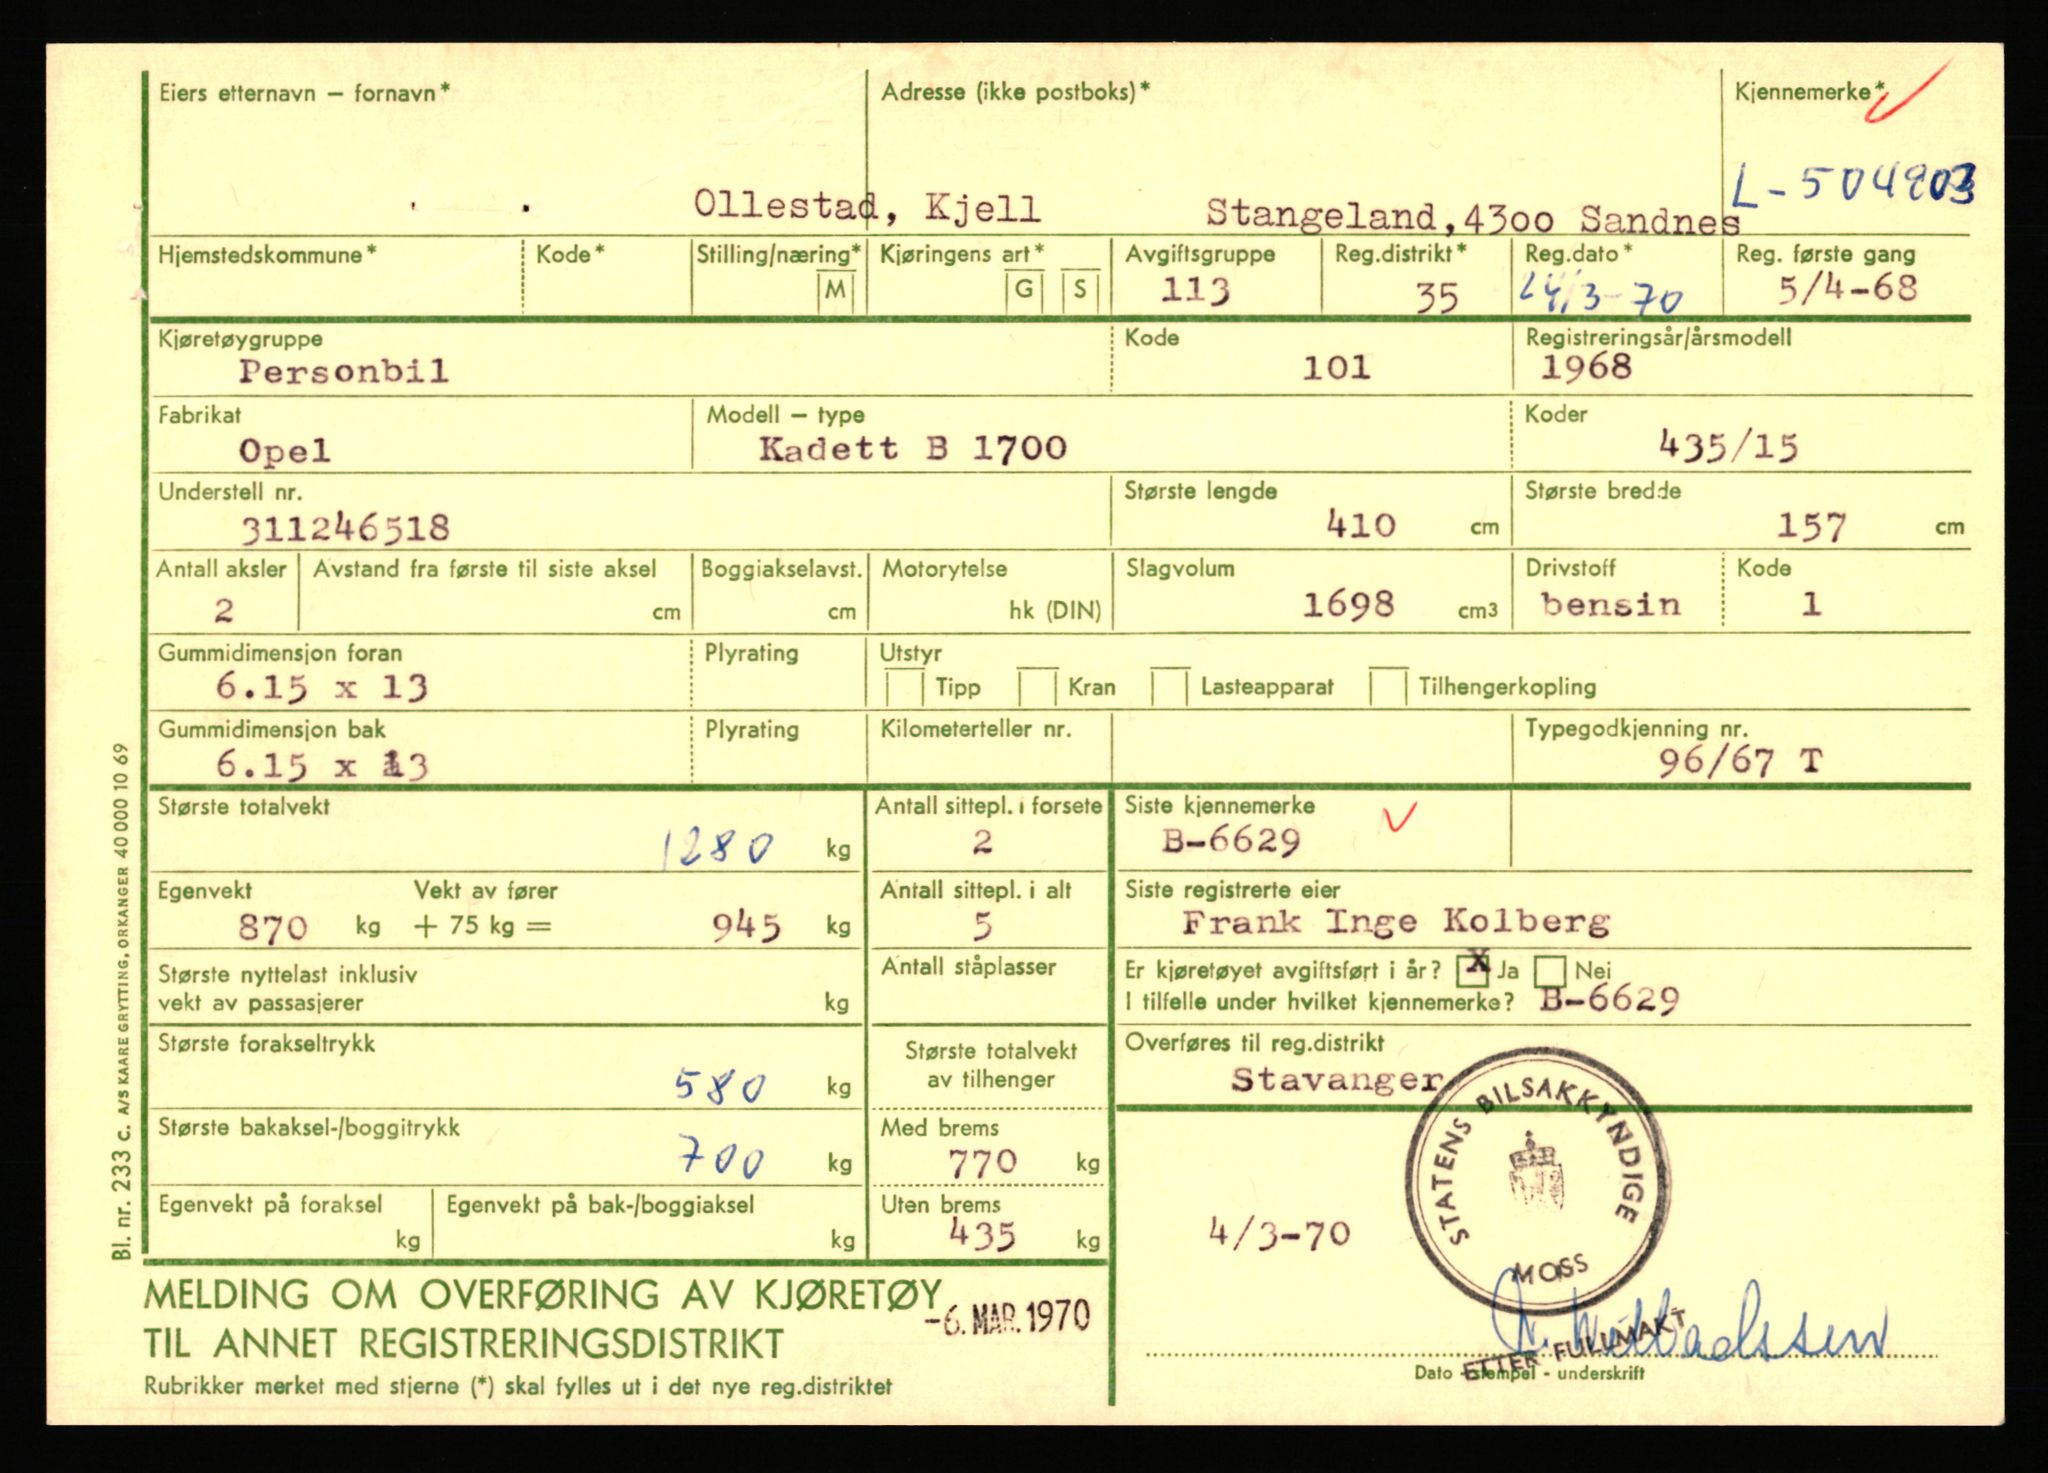 Eiers etternavn – fornavn* Adresse (ikke postboks)* Kjennemerke*
L-504203
Ollestad, Kjell Stangeland, 4300 Sandnes
Hjemstedskommune* Kode* Stilling/næring* Kjøringens art* Avgiftsgruppe Reg.distrikt* Reg.dato* Reg. første gang
M G S 113 35 24/3-70 5/4-68
Kjøretøygruppe Kode Registreringsår/årsmodell
Personbil 101 1968
Fabrikat Modell – type Koder
Opel Kadett B 1700 435/15
Understell nr. Største lengde Største bredde
311246518 410 cm 157 cm
Antall aksler Avstand fra første til siste aksel Boggiakselavst. Motorytelse Slagvolum Drivstoff Kode
2 cm cm hk (DIN) 1698 cm3 bensin 1
Gummidimensjon foran Plyrating Utstyr
6.15 x 13 Tipp Kran Lasteapparat Tilhengerkopling
Gummidimensjon bak Plyrating Kilometerteller nr. Typegodkjenning nr.
6.15 x 13 96/67 T
Største totalvekt Antall sittepl. i forsete Siste kjennemerke
1280 kg 2 B-6629
Egenvekt Vekt av fører Antall sittepl. i alt Siste registrerte eier
870 kg + 75 kg = 945 kg 5 Frank Inge Kolberg
Største nyttelast inklusiv Antall ståplasser Er kjøretøyet avgiftsført i år? x Ja Nei
vekt av passasjerer kg I tilfelle under hvilket kjennemerke? B-6629
Største forakseltrykk Største totalvekt Overføres til reg.distrikt
580 kg av tilhenger Stavanger
Største bakaksel-/boggitrykk Med brems
700 kg 770 kg
Egenvekt på foraksel Egenvekt på bak-/boggiaksel Uten brems
kg kg 435 kg 4/3-70
STATENS BILSAKKYNDIGE
MOSS
MELDING OM OVERFØRING AV KJØRETØY
-6. MAR. 1970
TIL ANNET REGISTRERINGSDISTRIKT
ETTER FULLMAKT
Dato - stempel - underskrift
Rubrikker merket med stjerne (*) skal fylles ut i det nye reg.distriktet
Bl. nr. 233 c. A/S KAARE GRYTTING, ORKANGER 40 000 10 69